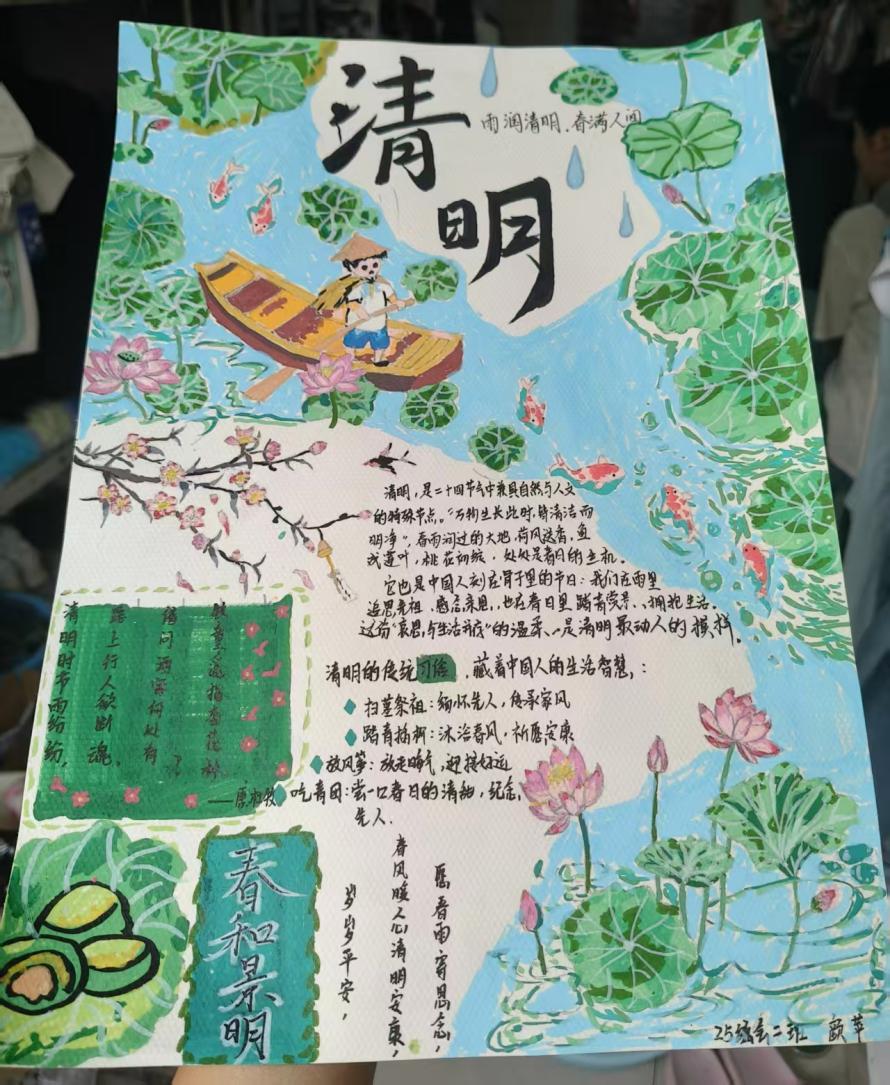 清
明
雨润清明.春满人间
清明，是二十四节气中兼具自然与人文
的特殊节点。“万物生长此时，皆清洁而
明净”，春雨润过的大地，荷风送香，鱼
戏莲叶，桃花初绽，处处是春日的生机。
它也是中国人刻在骨子里的节日：我们在雨里
追思先祖、感念亲恩，也在春日里踏青赏景、拥抱生活。
这份“哀思与生活并存”的温柔，是清明最动人的模样。
清明的传统习俗，藏着中国人的生活智慧，：
扫墓祭祖：缅怀先人，传承家风
踏青插柳：沐浴春风，祈愿安康
放风筝：放走晦气，迎接好运
吃青团：尝一口春日的清甜，纪念
先人.
清明时节雨纷纷，
路上行人欲断魂，
借问酒家何处有
牧童遥指杏花村
——唐·杜牧
春和景明
愿春雨寄思念，
春风暖人心清明安康，
岁岁平安，